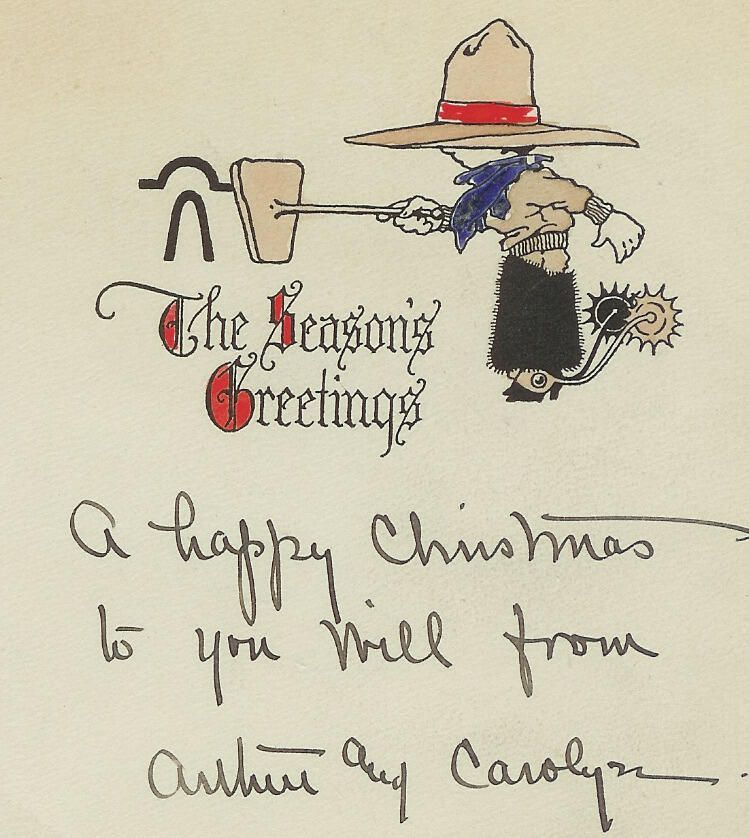 The Season's
Greetings
A happy Christmas
to you Will from
Arthur and Carolyn.